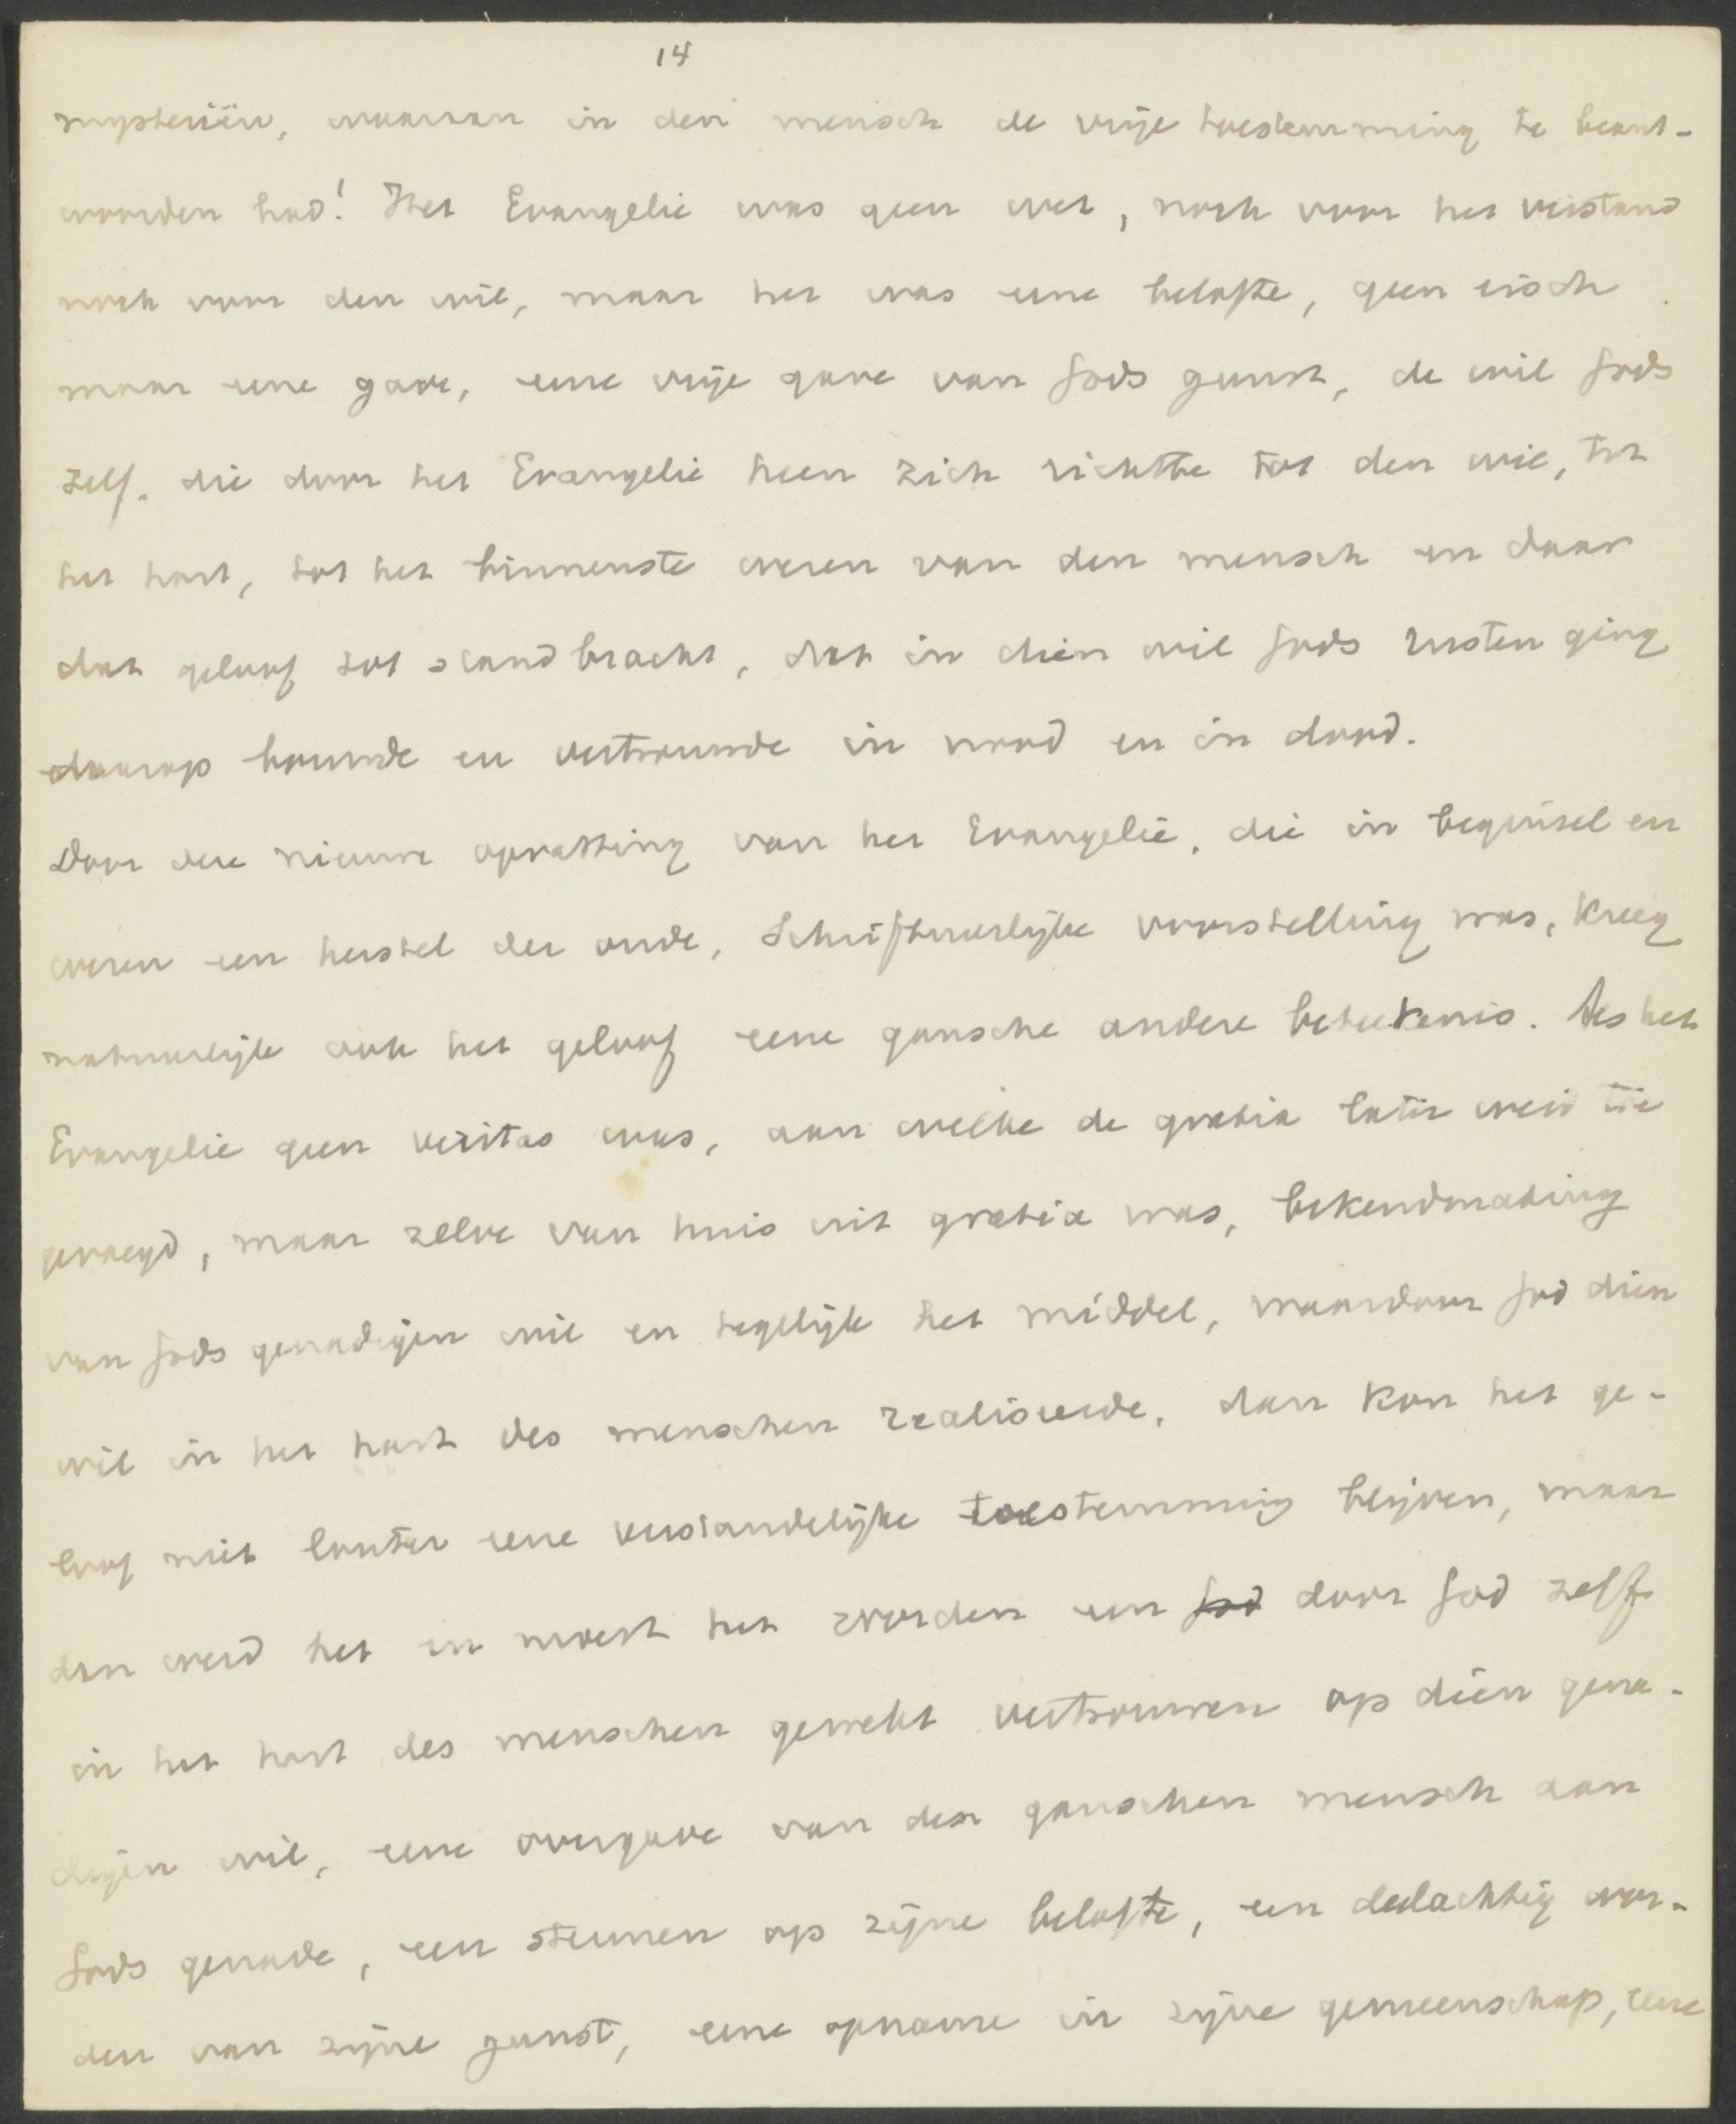 14
mysteriën, waaraan in den mensch de vrije toestemming te beant-
woorden had! Het Evangelie was geen wet, noch voor het verstand
noch voor den wil, maar het was eene belofte, geen eisch
maar eene gave, eene vrije gave van Gods gunst, de wil Gods
zelf. die door het Evangelie heen zich richtte tot den wil, tot
het hart, tot het binnenste wezen van den mensch en daar
dat geloof tot stand bracht, dat in dien wil Gods rusten ging
daarop bouwde en vertrouwde in nood en in dood.
Door deze nieuwe opvatting van het Evangelie, die in beginsel en
wezen een herstel der oude, Schriftuurlijke voorstelling was, kreeg
natuurlijk ook het geloof eene gansche andere beteekenis. Als het
Evangelie geen veritas was, aan welke de gratia later werd toe
gevoegd, maar zelve van huis uit gratia was, bekendmaking
van Gods genadigen wil en tegelijk het middel, waardoor God dien
wil in het hart des menschen realiseerde, dan kon het ge-
loof niet louter eene verstandelijke toestemming blijven, maar
dan werd het en moest het worden een God door God zelf
in het hart des menschen gewekt vertrouwen op dien gena-
digen wil, eene overgave van den ganschen mensch aan
Gods genade, een steunen op zijne belofte, een deelachtig wor-
den van zijne gunst, eene opname in zijne gemeenschap, eene